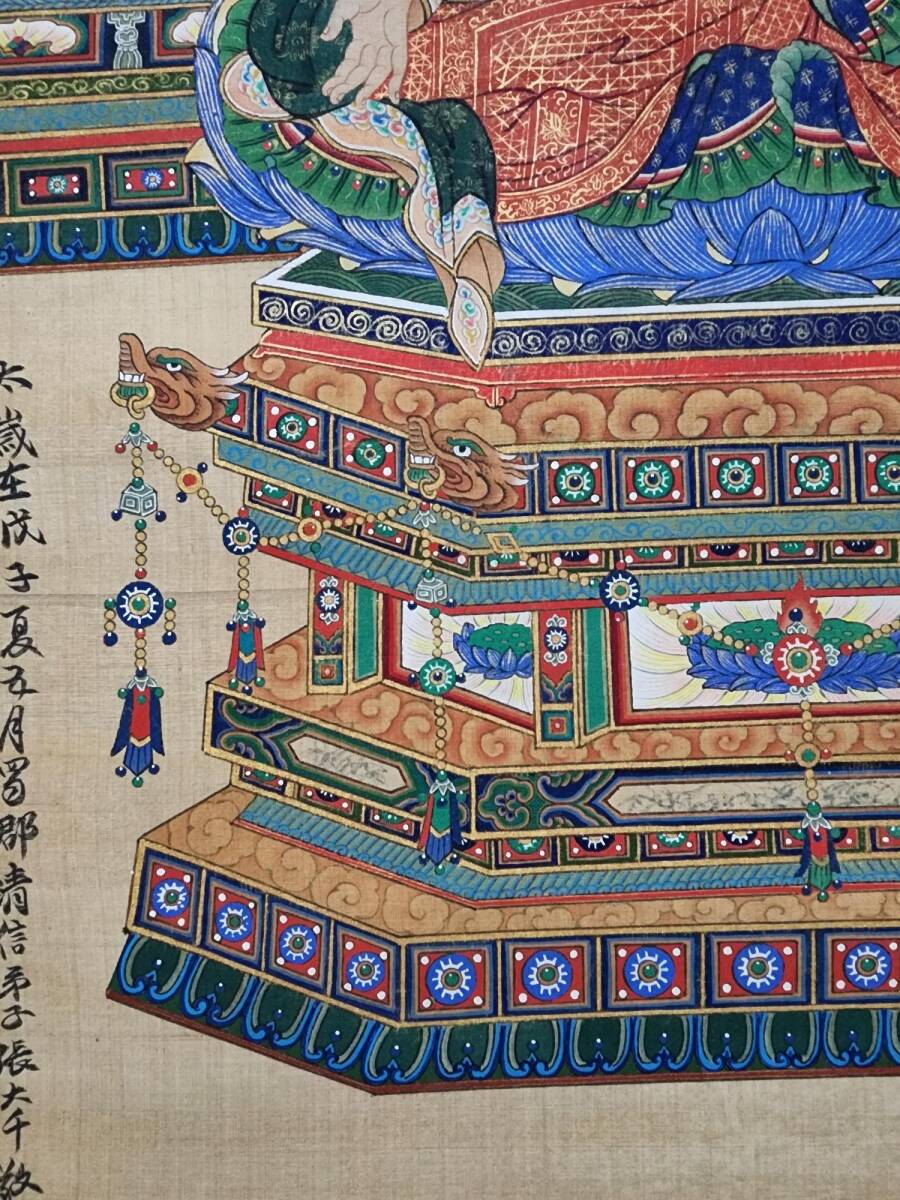 太歲在戊子夏五月蜀郡清信弟子張大千敬